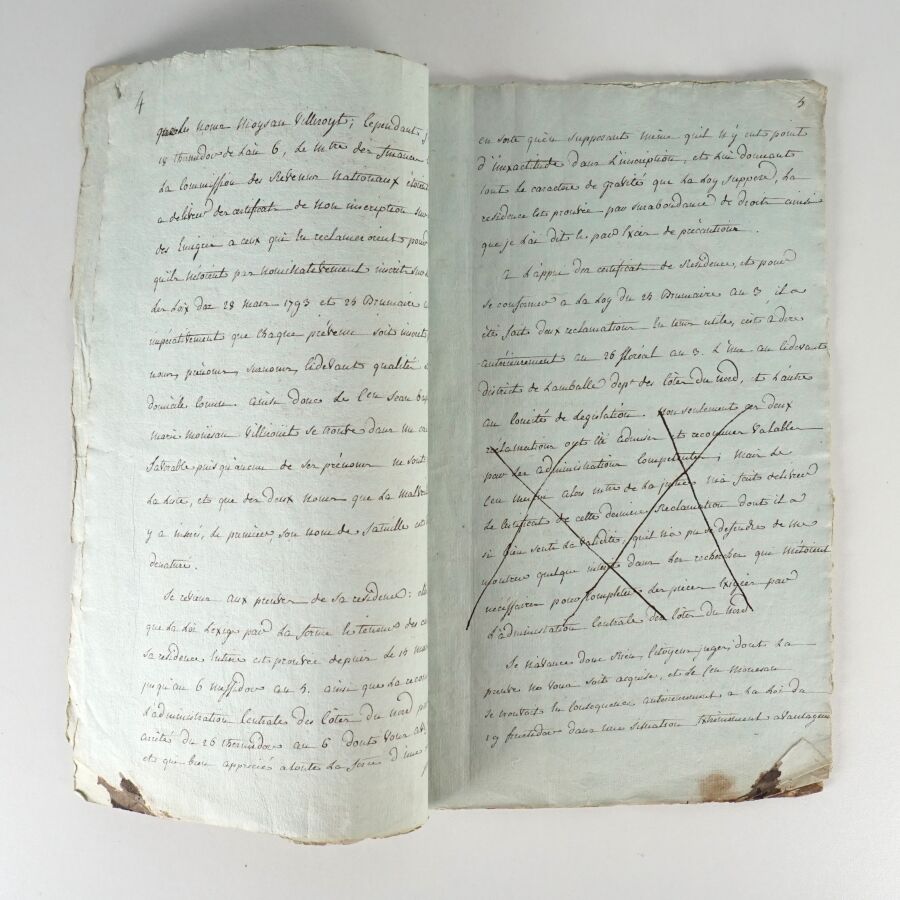 4
que les nome Moysan Villirouet; Cependant
18 thermidor de L'an 6, Le mtre des finances
La Commission des Revenus Nationaux
a delivrer des certificats de non inscription sur
des Emigrés a ceux qui En reclameroient pour
qu'ils n'étoient pas nominativement inscrits sur
Les Loix des 28 mars 1793 et 25 Brumaire
impérativement que Chaque prévenu soit inscrit
noms, prénoms, surnoms, cidevant qualité
domicile connu. ainsi donc Le C.en Jean
marie mouësan Villirouët se trouve dans un cas
favorable puisqu'aucun de ses prénoms ne sont
La Liste, et que des deux Noms que La
y a insérés, Le premier, son nom de famille
dénaturé.
Je reviens aux preuves de sa residence:
que La Loi L'exige pour La forme
Sa residence Entiere est prouvée depuis Le 15 mai
jusqu'au 6 messidor an 5. ainsi que L'a
L'administration Centrale des Côtes du Nord
arrêté du 26 thermidor an 6 dont vous
et que bien appréciés a toute La force d'une
5
en sorte qu'en supposant même qu'il n'y eut point
d'inexactitude dans L'inscription, et Lui donnant
tout le caractere de gravité que La Loy suppose, La
residence est prouvée par surabondance de droits ainsi
que je L'ai dit et par Excès de précautions.
a L'appui des certificats de Residence, et pour
se conformer a La Loy du 25 Brumaire an 3 il a
été fait deux reclamations En tems utile, c'est a dire
antérieurement au 26 floréal an 3. L'une au cidevant
district de Lamballe dept. des Côtes du Nord, et L'autre
au Comité de Législation. non seulement ces deux
réclamations ont été admises et reconnues Valables
par Les administrations Competentes; mais Le
C.en Merlin alors mtre de La justice m'a fait delivrer
Le Certificat de cette derniere Reclamation dont il a
si bien senti La validité, qu'il n'a pu se defendre de me
montrer quelque intérêt dans Les recherches qui m'étoient
nécéssaires pour Completer Les pieces Exigées par
L'administration Centrale des Côtes du Nord
Je n'avance donc Rien, Citoyens juges, dont La
preuve ne vous soit acquise, et Le C.en Mouesan
se trouvoit En Consequence anterieurement a La Loi du
19 fructidor dans une situation Extrêmement avantageuse